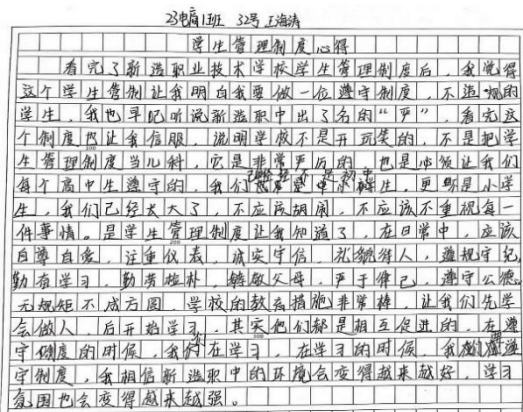 23电商1班 32号 王海涛
学生管理制度心得
看完了新造职业技术学校学生管理制度后,我觉得
这个学生管制让我明白我要做一位遵守制度,不违规的
学生,我也早已听说新造职中出了名的“严”,看完这
个制度也让我信服,说明学校不是开玩笑的,不是把学
生管理制度当儿科,它是非常严厉的,也是必须让我们
每个高中生遵守的,我们已经不是初中生,更别是小学
生,我们已经长大了,不应该胡闹,不应该不重视每一
件事情。是学生管理制度让我知道了,在日常中,应该
自尊自爱,注重仪表,诚实守信,礼貌待人,遵规守纪,
勤奋学习,勤劳俭朴,孝敬父母,严于律己,遵守公德,
无规矩不成方圆,学校的教育措施非常棒,让我们先学
会做人,后开始学习,其实他们都是相互促进的,在遵
守制度的时候,我们在学习,在学习的时候,我们遵
守制度,我相信新造职中的环境会变得越来越好,学习
氛围也会变得越来越强。